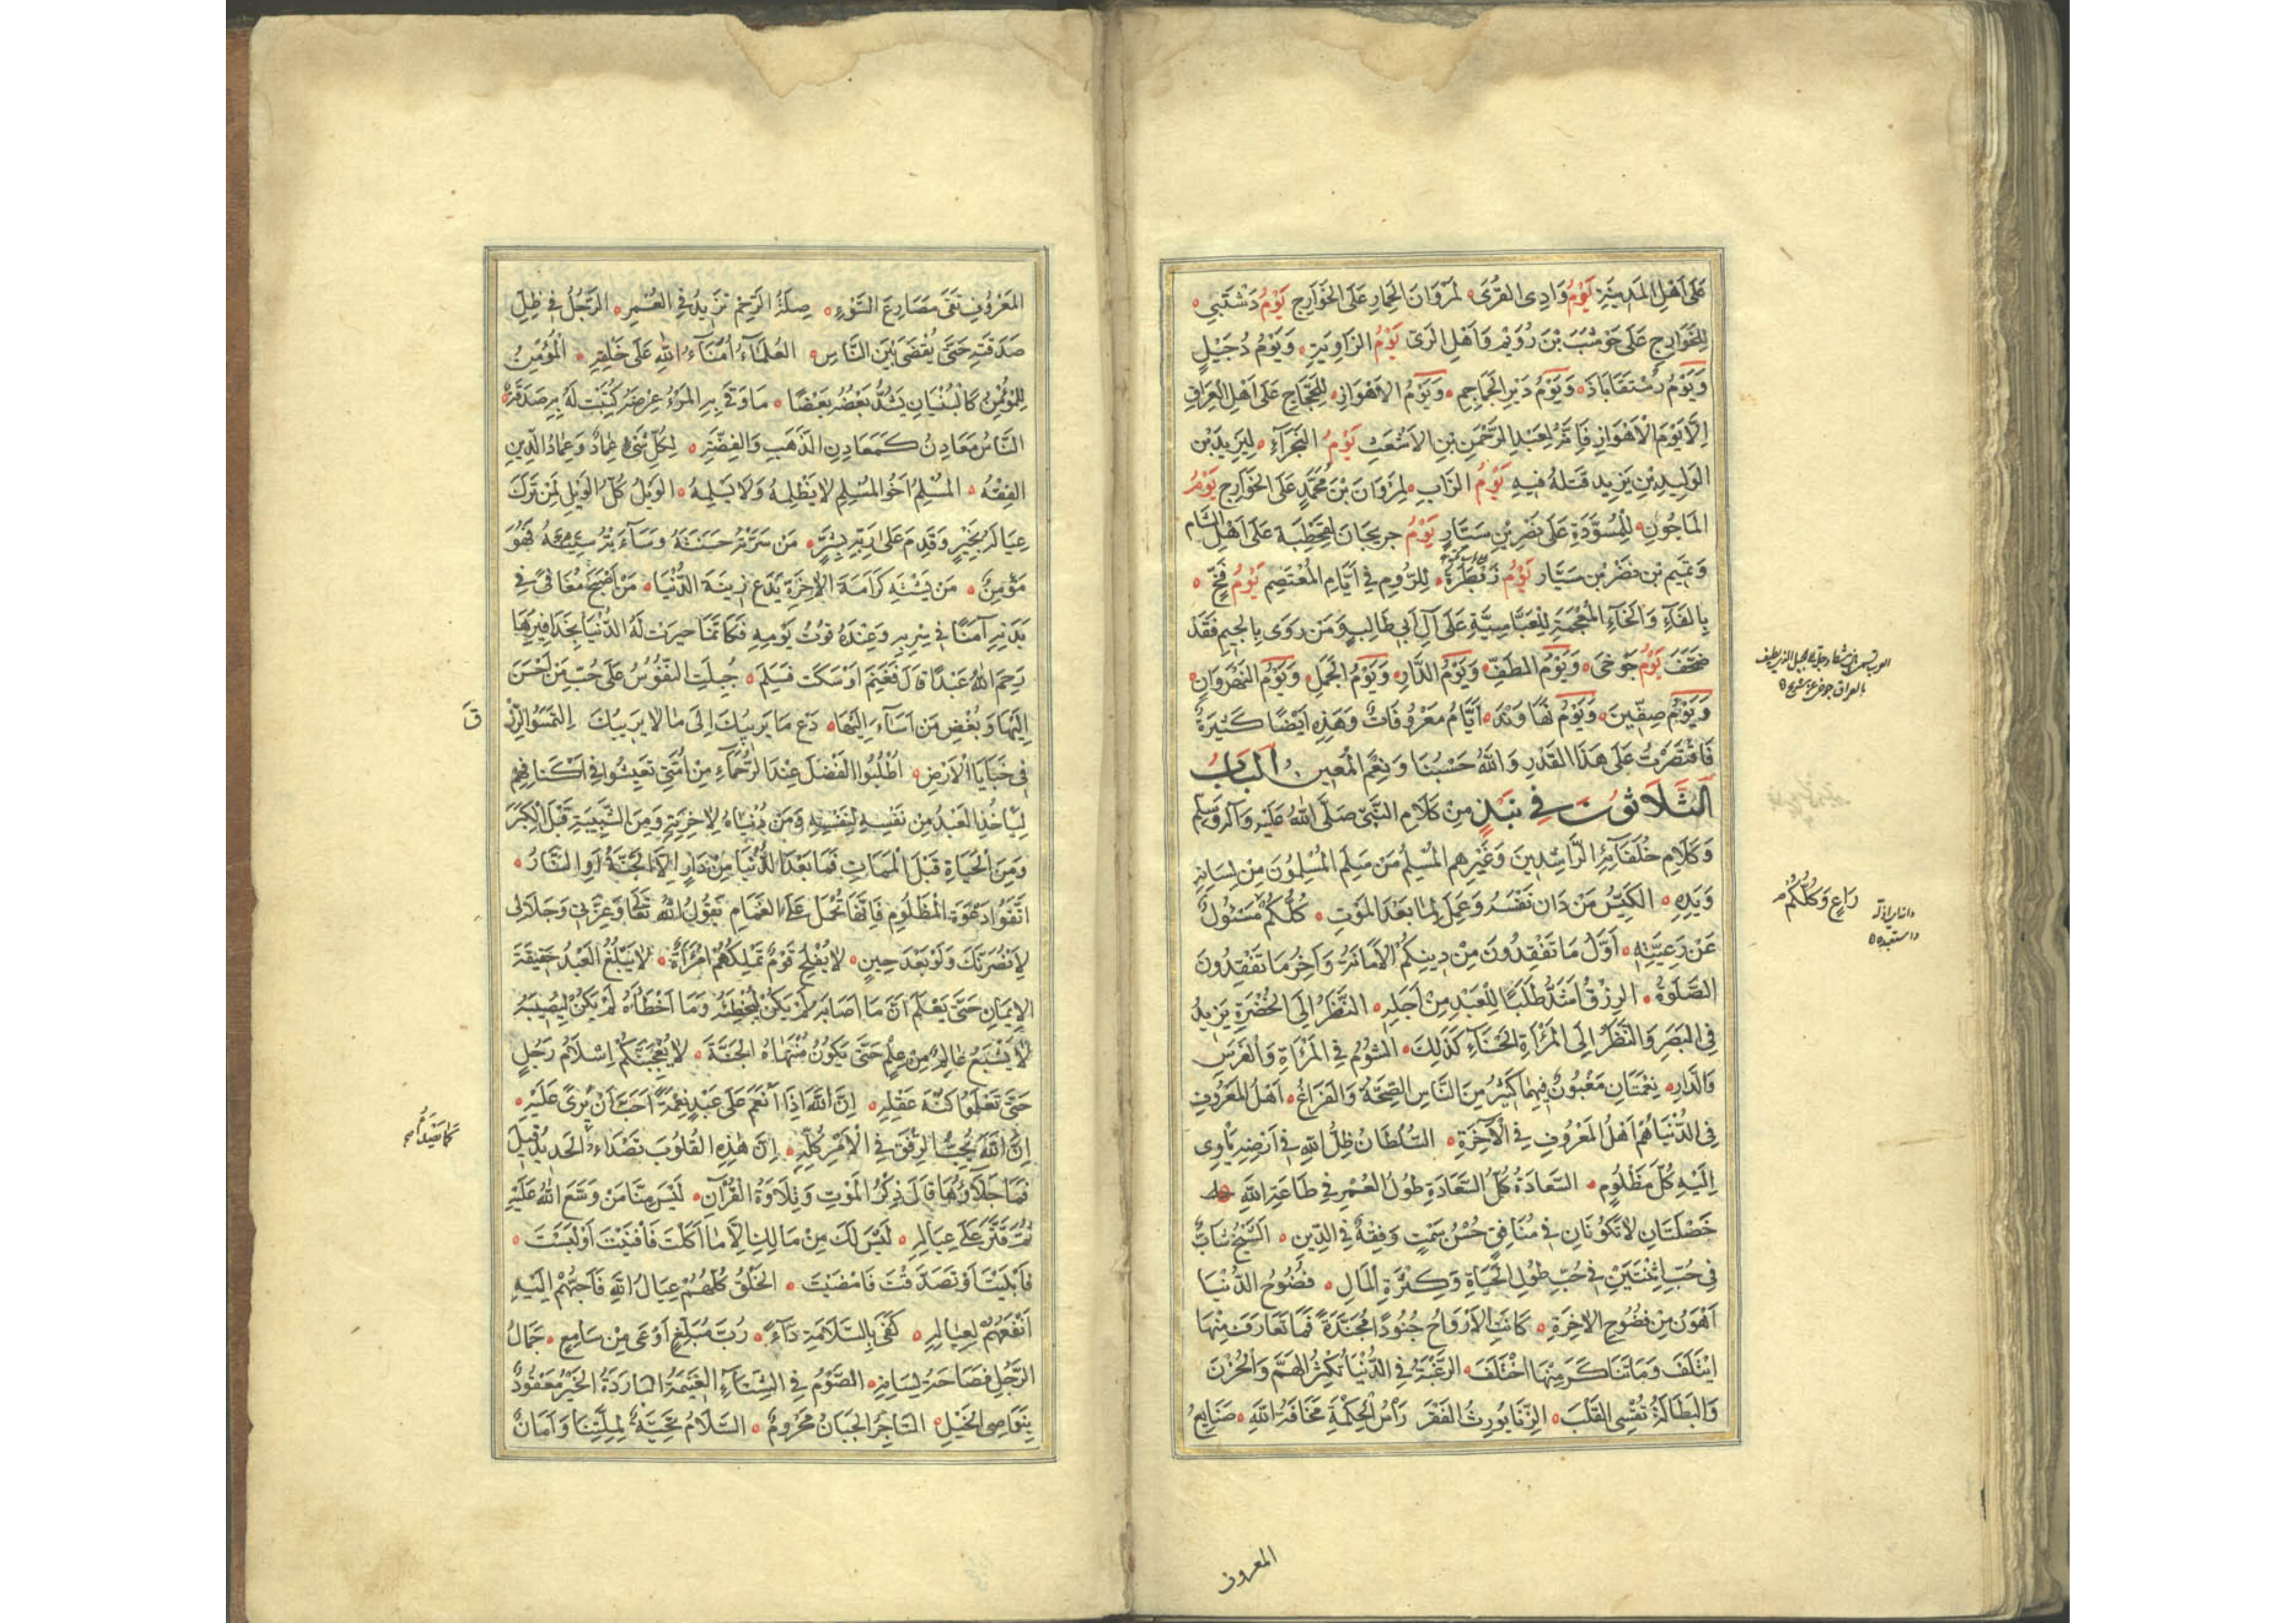 عَلَى اَهْلِ المَدِينَةِ يَوْمُ وَادِى القُرَى لِمَرْوَانَ الحِمَارِ عَلَى الخَوَارِجِ يَوْمُ دَشْتَبِي
لِلخَوَارِجِ عَلَى حَوْشَبَ بْنِ رُوَيْمٍ وَاَهْلِ الرَىّ يَوْمُ الزَاوِيَةِ وَيَوْمُ دُجَيْلٍ
وَيَوْمُ رُسْتَقَابَاذَ وَيَوْمُ دَيْرِ الجَمَاجِمِ وَيَوْمُ الاَهْوَازِ لِلحَجَّاجِ عَلَى اَهْلِ العِرَاقِ
اِلَّا يَوْمَ الْاَهْوَازِ فَاِنَّهُ لِعَبْدِ الرَحْمَنِ بْنِ الاَشْعَثِ يَوْمُ البَخْرَآءِ لِيَزِيدَ بْنِ
الوَلِيدِ بْنِ يَزِيد قَتَلَهُ فِيهِ يَوْمُ الزَابِ لِمَرْوَانَ بْنِ مُحَمَّدٍ عَلَى الخَوَارِجِ يَوْمُ
المَاجُونِ لِلْمُسَوِّدَةِ عَلَى نَصْرِ بْنِ سَيَّارٍ يَوْمُ جريجَانَ لِقَحْطَبَةَ عَلَى اَهْلِ الشَام
وَتَمِيمِ بْنِ نَصْرِ بْنِ سَيَّار يَوْمُ زِبَطْرَةَ لِلرُّومِ فِي اَيَّامِ المُعْتَصِمِ يَوْمُ فَخٍّ
بِالفَآءِ وَالخَآءِ المُعْجَمَةِ لِلْعَبَّاسِيَّةِ عَلَى آلِ اَبِي طَالِبٍ وَمَنْ رَوَى بِالجِيمِ فَقَدْ
صَحَّفَ يَوْمُ جَوْخَى وَيَوْمُ الطَفِّ وَيَوْمُ الدَّارِ وَيَوْمُ الجَمَلِ وَيَوْمُ النَهْرَوَانِ
وَيَوْمُ صِفِّينَ وَيَوْمُ نَهَاوَنْدَ اَيَّامٌ مَعْرُوفَاتٌ وَهَذِهِ اَيْضًا كَثِيرَةٌ
فَاقْتَصَرْتُ عَلَى هَذَا القَدْرِ وَاللهُ حَسْبُنَا وَنِعْمَ المُعِين البَابُ
الثَلَاثُونَ فِي نَبْذٍ مِنْ كَلَامِ النَّبِيّ صَلَّى اللهُ عَلَيْهِ وَآلِهِ وَسَلَّم
وَكَلَامِ خُلَفَآئِهِ الرَّاشِدِينَ وَغَيْرِهِم المُسْلِمُ مَنْ سَلِمَ المُسْلِمُونَ مِنْ لِسَانِهِ
وَيَدِهِ الكَيِّسُ مَنْ دَانَ نَفْسَهُ وَعَمِلَ لِمَا بَعْدَ المَوْتِ كُلُّكُمْ مَسْئُولٌ
عَنْ رَعِيَّتِهِ اَوَّلُ مَا تَفْقِدُونَ مِنْ دِينِكُمْ الاَمَانَةُ وَآخِرُ مَا تَفْقِدُونَ
الصَّلَوةُ الرِزْقُ اَشَدُّ طَلَبًا لِلْعَبْدِ مِنْ اَجَلِهِ النَّظَرُ اِلَى الخُضْرَةِ يَزِيدُ
فِي البَصَرِ وَالنَّظَرُ اِلَى المَرْأَةِ الحَسْنَآءِ كَذَلِكَ الشُومُ فِي المَرْأَةِ وَالفَرَسِ
وَالدَّارِ نِعْمَتَانِ مَغْبُونٌ فِيهِمَا كَثِيرٌ مِنَ النَّاسِ الصِّحَّةُ وَالفَرَاغُ اَهْلُ المَعْرُوفِ
فِي الدُّنْيَا هُمْ اَهْلُ المَعْرُوفِ فِي الآخِرَةِ السُّلْطَانُ ظِلُّ اللهِ فِي اَرْضِهِ يَأْوِى
اِلَيْهِ كُلُّ مَظْلُومٍ السَّعَادَةُ كُلُّ السَّعَادَةِ طُولُ العُمْرِ فِي طَاعَةِ اللهِ
خَصْلَتَانِ لَا تَكُونَانِ فِي مُنَافِقٍ حُسْنُ سَمْتٍ وَفِقْهٌ فِي الدِّينِ الشَّيْخُ شَابٌّ
فِي حُبِّ اثْنَتَيْنِ فِي حُبِّ طُولِ الحَيَاةِ وَكَثْرَةِ المَالِ فُضُوحُ الدُّنْيَا
اَهْوَنُ مِنْ فُضُوحِ الآخِرَةِ كَانَتِ الاَرْوَاحُ جُنُودًا مُجَنَّدَةً فَمَا تَعَارَفَ مِنْهَا
ايْتَلَفَ وَمَا تَنَاكَرَ مِنْهَا اخْتَلَفَ الرَغْبَةُ فِي الدُّنْيَا تُكْثِرُ الهَمَّ وَالحُزْنَ
وَالبَطَالَةُ تُقْسِى القَلْبَ الزِّنَا يُورِثُ الفَقْرَ رَأْسُ الحِكْمَةِ مَخَافَةُ اللهِ صَنَايِعُ
رَاعٍ وَكُلُّكُمْ
المعروف
المَعْرُوفِ تَقِى مَصَارِعَ السَّوْءِ صِلَةُ الرَّحِمِ تَزِيدُ فِي العُمْرِ الرَّجُلُ فِي ظِلِّ
صَدَقَتِهِ حَتَّى يُقْضَى بَيْنَ النَّاسِ العُلَمَآءُ اُمَنَآءُ اللهِ عَلَى خَلْقِهِ الْمُؤْمِنُ
لِلْمُؤْمِنِ كَالبُنْيَانِ يَشُدُّ بَعْضُهُ بَعْضًا مَا وَقَى بِهِ المَرْءُ عِرْضَهُ كُتِبَتْ لَهُ بِهِ صَدَقَةٌ
النَّاسُ مَعَادِنُ كَمَعَادِنِ الذَهَبِ وَالفِضَّةِ لِكُلِّ شَىْءٍ عِمَادٌ وَعِمَادُ الدِّينِ
الفِقْهُ المُسْلِمُ اَخُو المُسْلِمِ لَا يَظْلِمُهُ وَلَا يُسْلِمُهُ الوَيْلُ كُلُّ الوَيْلِ لِمَنْ تَرَكَ
عِيَالَهُ بِخَيْرٍ وَقَدِمَ عَلَى رَبِّهِ بِشَرٍّ مَنْ سَرَّتْهُ حَسَنَتُهُ وَسَآءَتْهُ سَيِّئَتُهُ فَهُوَ
مُؤْمِنٌ مَنْ يَشْتَهِ كَرَامَةَ الآخِرَةِ يَدَعْ زِينَةَ الدُّنْيَا مَنْ اَصْبَحَ مُعَافًى فِي
بَدَنِهِ آمِنًا فِي سِرْبِهِ وَعِنْدَهُ قُوتُ يَوْمِهِ فَكَانَّمَا حِيزَتْ لَهُ الدُّنْيَا بِحَذَافِيرِهَا
رَحِمَ اللهُ عَبْدًا قَالَ فَغَنِمَ اَوْ سَكَتَ فَسَلِمَ جُبِلَتِ النُّفُوسُ عَلَى حُبِّ مَنْ اَحْسَنَ
اِلَيْهَا وَبُغْضِ مَنْ اَسَآءَ اِلَيْهَا دَعْ مَا يَرِيبُكَ اِلَى مَا لَا يَرِيبُكَ اِلتَمِسُوا الرِّزْ
قَ
فِي خَبَايَا الاَرْضِ اُطْلُبُوا الفَضْلَ عِنْدَ الرُّحَمَآءِ مِنْ اُمَّتِي تَعِيشُوا فِي اَكْنَافِهِمْ
لِيَأْخُذِ العَبْدُ مِنْ نَفْسِهِ لِنَفْسِهِ وَمِنْ دُنْيَاهُ لِآخِرَتِهِ وَمِنَ الشَّبِيبَةِ قَبْلَ الكِبَرِ
وَمِنَ الحَيَاةِ قَبْلَ الْمَمَاتِ فَمَا بَعْدَ الدُّنْيَا مِنْ دَارٍ اِلَّا الجَنَّةُ اَوِ النَّارُ
اتَّقُوا دَعْوَةَ المَظْلُومِ فَاِنَّهَا تُحْمَلُ عَلَى الغَمَامِ يَقُولُ اللهُ تَعَالَى وَعِزَّتِي وَجَلَالِى
لَاَنْصُرَنَّكَ وَلَوْ بَعْدَ حِينٍ لَا يُفْلِحُ قَوْمٌ تَمْلِكُهُمْ امْرَأَةٌ لَا يَبْلُغُ العَبْدُ حَقِيقَةَ
الاِيمَانِ حَتَّى يَعْلَمَ اَنَّ مَا اَصَابَهُ لَمْ يَكُنْ لِيُخْطِئَهُ وَمَا اَخْطَأَهُ لَمْ يَكُنْ لِيُصِيبَهُ
لَا يَشْبَعُ عَالِمٌ مِنْ عِلْمٍ حَتَّى يَكُونَ مُنْتَهَاهُ الجَنَّةَ لَا يُعْجِبَنَّكُمْ اِسْلَامُ رَجُلٍ
حَتَّى تَعْلَمُوا كُنْهَ عَقْلِهِ اِنَّ اللهَ اِذَا اَنْعَمَ عَلَى عَبْدٍ نِعْمَةً اَحَبَّ اَنْ تُرَى عَلَيْهِ
اِنَّ اللهَ يُحِبُّ الرِفْقَ فِي الْاَمْرِ كُلِّهِ اِنَّ هٰذِهِ القُلُوبَ تَصْدَاُ الحَدِيدُ قِيلَ
فَمَا جَلَآؤُهَا قَالَ ذِكْرُ المَوْتِ وَتِلَاوَةُ القُرْآنِ لَيْسَ مِنَّا مَنْ وَسَّعَ اللهُ عَلَيْهِ
ثُمَّ قَتَّرَ عَلَى عِيَالِهِ لَيْسَ لَكَ مِنْ مَالِكَ اِلَّا مَا اَكَلْتَ فَاَفْنَيْتَ اَوْ لَبِسْتَ
فَاَبْلَيْتَ اَوْ تَصَدَّقْتَ فَامْضَيْتَ الخَلْقُ كُلُّهُمْ عِيَالُ اللهِ فَاَحَبُّهُمْ اِلَيْهِ
اَنْفَعُهُمْ لِعِيَالِهِ كَفَى بِالسَّلَامَةِ دَآءً رُبَّ مُبَلَّغٍ اَوْعَى مِنْ سَامِعٍ جَمَالُ
الرَّجُلِ فَصَاحَةُ لِسَانِهِ الصَّوْمُ فِي الشِّتَآءِ الغَنِيمَةُ البَارِدَةُ الخَيْرُ مَعْقُودٌ
بِنَوَاصِى الخَيْلِ التَاجِرُ الجَبَانُ مَحْرُومٌ السَّلَامُ تَحِيَّةٌ لِمِلَّتِنَا وَاَمَانٌ